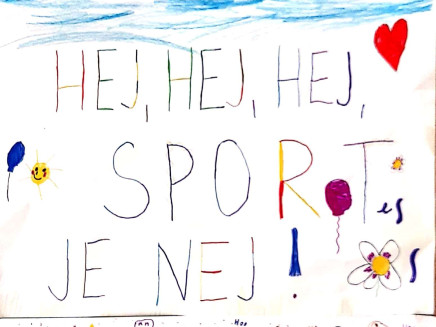 HEJ, HEJ, HEJ,
SPORT
JE NEJ!